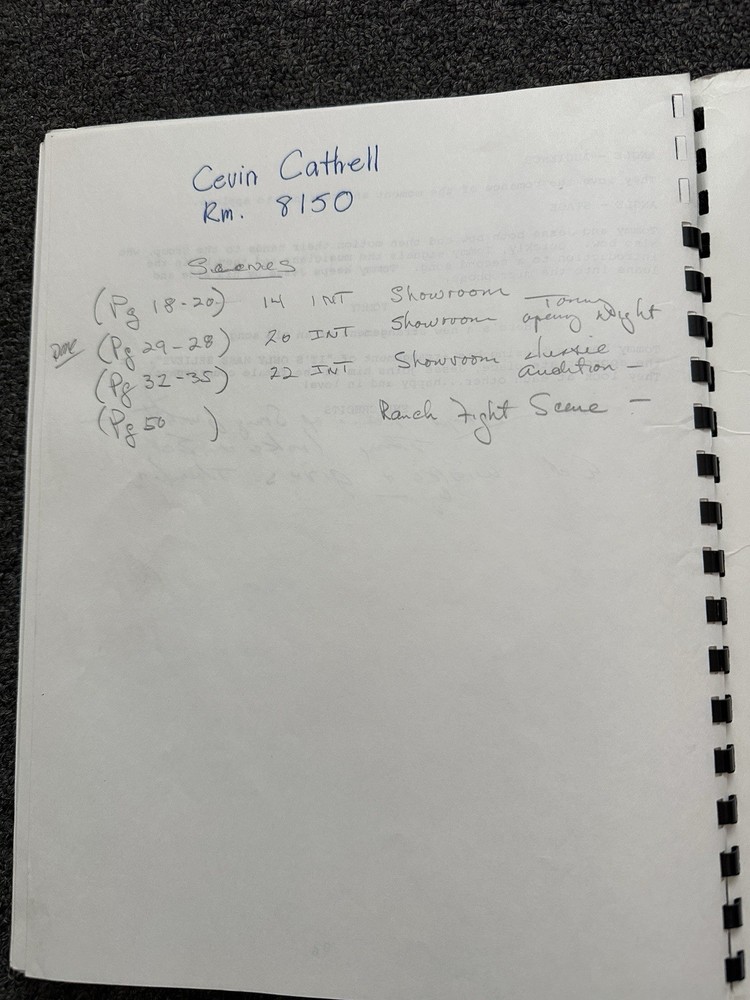 Cevin Cathell
Rm. 8150
Scenes
(Pg 18-20) 14 INT Showroom Tommy opening Night
Done (Pg 29-28) 20 INT Showroom
(Pg 32-35) 22 INT Showroom audition -
(Pg 50 ) Ranch Fight Scene -